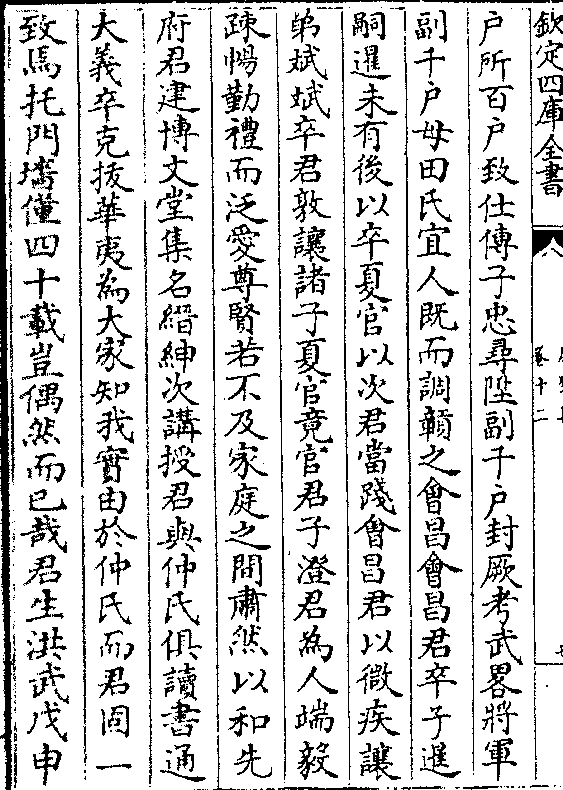 欽定四庫全書
卷十二
户所百户致仕傳子忠尋陞副千户封厥考武畧將軍
副千户母田氏宜人既而調贛之㑹昌㑹昌君卒子暹
嗣暹未有後以卒夏官以次君當踐㑹昌君以微疾讓
弟斌斌卒君敦讓諸子夏官竟官君子澄君為人端毅
疎暢勤禮而泛愛尊賢若不及家庭之間肅然以和先
府君建博文堂集名縉紳次講授君與仲氏俱讀書通
大義卒克拔華夷為大家知我實由於仲氏而君固一
致焉托門壻僅四十載豈偶然而已哉君生洪武戊申